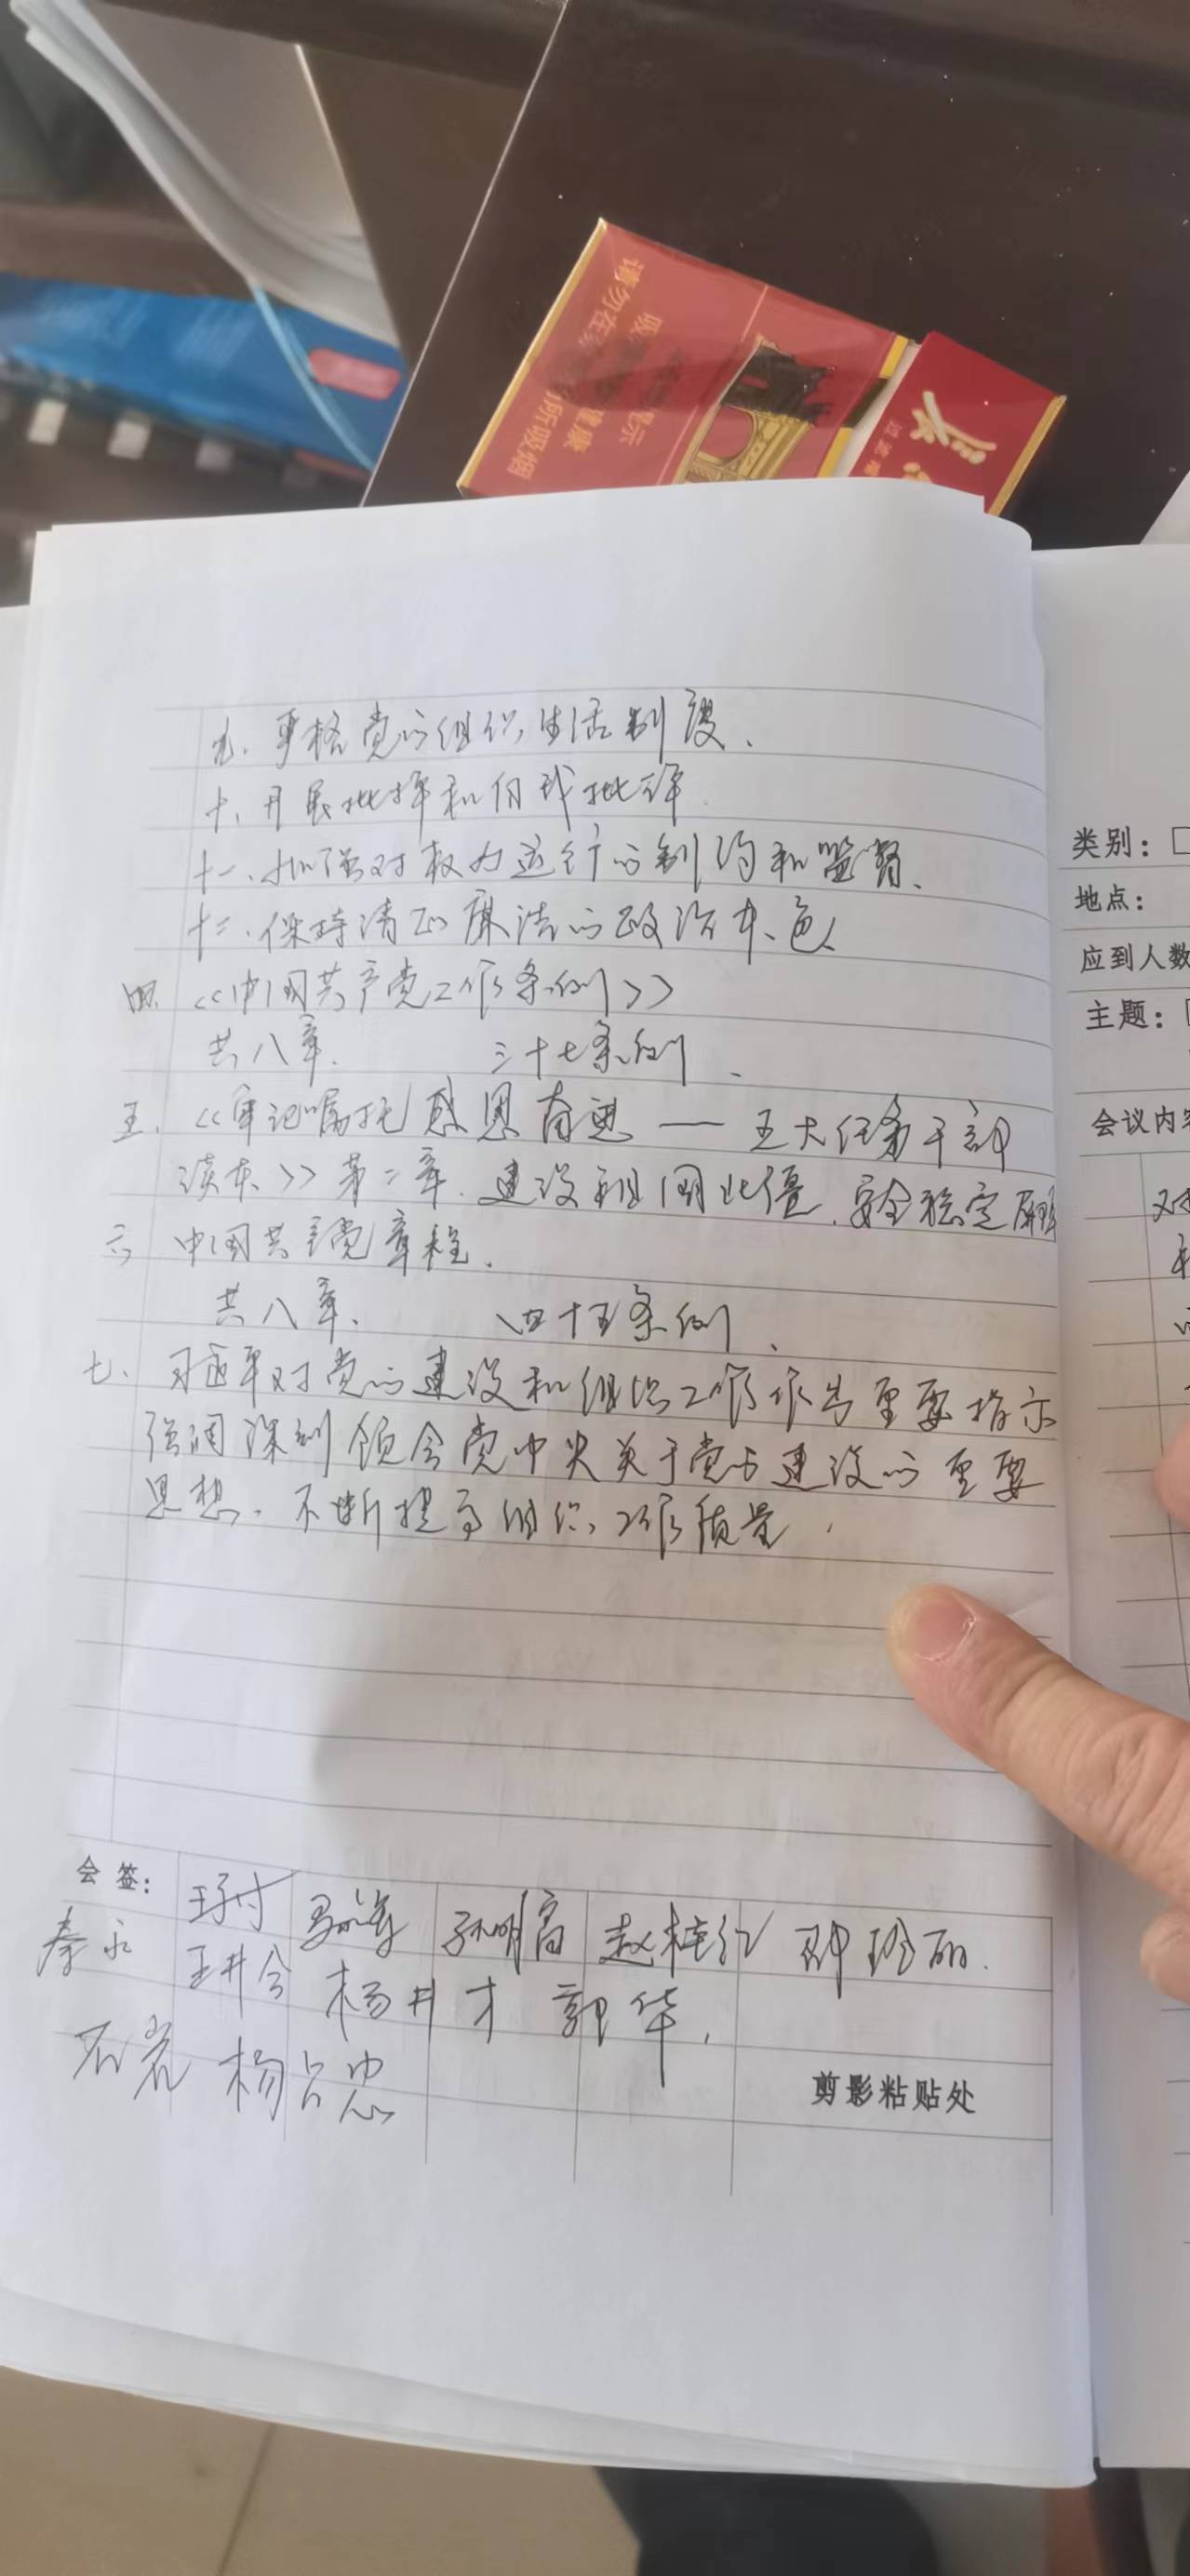 请勿在禁
所吸烟
九、严格党的组织生活制度、
十、开展批评和自我批评.
十一、加强对权力运行的制约和监督、
十二、保持清正廉洁的政治本色
四. <<中国共产党工作条例>>
共八章. 三十七条例、
五. <<牢记嘱托感恩奋进——五大任务干部
读本>>第二章. 建设祖国北疆.安全稳定屏障
六 中国共产党章程.
共八章. 四十五条例、
七、习近平对党的建设和组织工作作出重要指示
强调深刻领会党中央关于党的建设的重要
思想. 不断提高组织工作质量.
会签:
秦永 孙明高 赵桂
王井合 杨井才 郭华.
石岩 杨占忠
剪影粘贴处
类别:
地点:
应到人数
主题:
会议内容
对